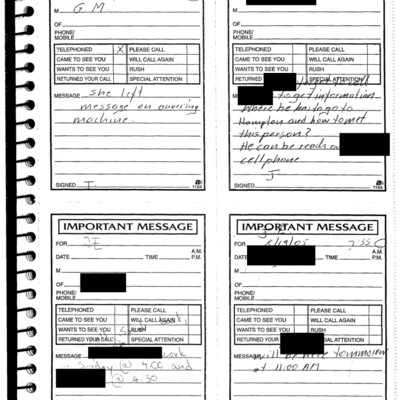 M G.M.
OF
PHONE/
MOBILE
TELEPHONED X PLEASE CALL
CAME TO SEE YOU WILL CALL AGAIN
WANTS TO SEE YOU RUSH
RETURNED YOUR CALL SPECIAL ATTENTION
MESSAGE She left
message on
machine.
SIGNED J. 1184
OF
PHONE/
MOBILE
TELEPHONED PLEASE CALL
CAME TO SEE YOU WILL CALL AGAIN
WANTS TO SEE YOU RUSH
RETURNED SPECIAL ATTENTION
MESSAGE
to get information
Where he has to go to
and how to met
this person?
He can be reach on
cellphone
J
SIGNED 1184
IMPORTANT MESSAGE
FOR JE
DATE TIME A.M.
P.M.
M
OF
PHONE/
MOBILE
TELEPHONED PLEASE CALL
CAME TO SEE YOU WILL CALL AGAIN
WANTS TO SEE YOU RUSH
RETURNED YOUR CALL SPECIAL ATTENTION
MESSAGE work
Sunday @ 4:00 and
@ 4:30
IMPORTANT MESSAGE
FOR
DATE TIME A.M.
P.M.
M
OF
PHONE/
MOBILE
TELEPHONED PLEASE CALL
CAME TO SEE YOU WILL CALL AGAIN
WANTS TO SEE YOU RUSH
RETURNED YOUR SPECIAL ATTENTION
MESSAGE will be here tommorow
at 11:00 AM